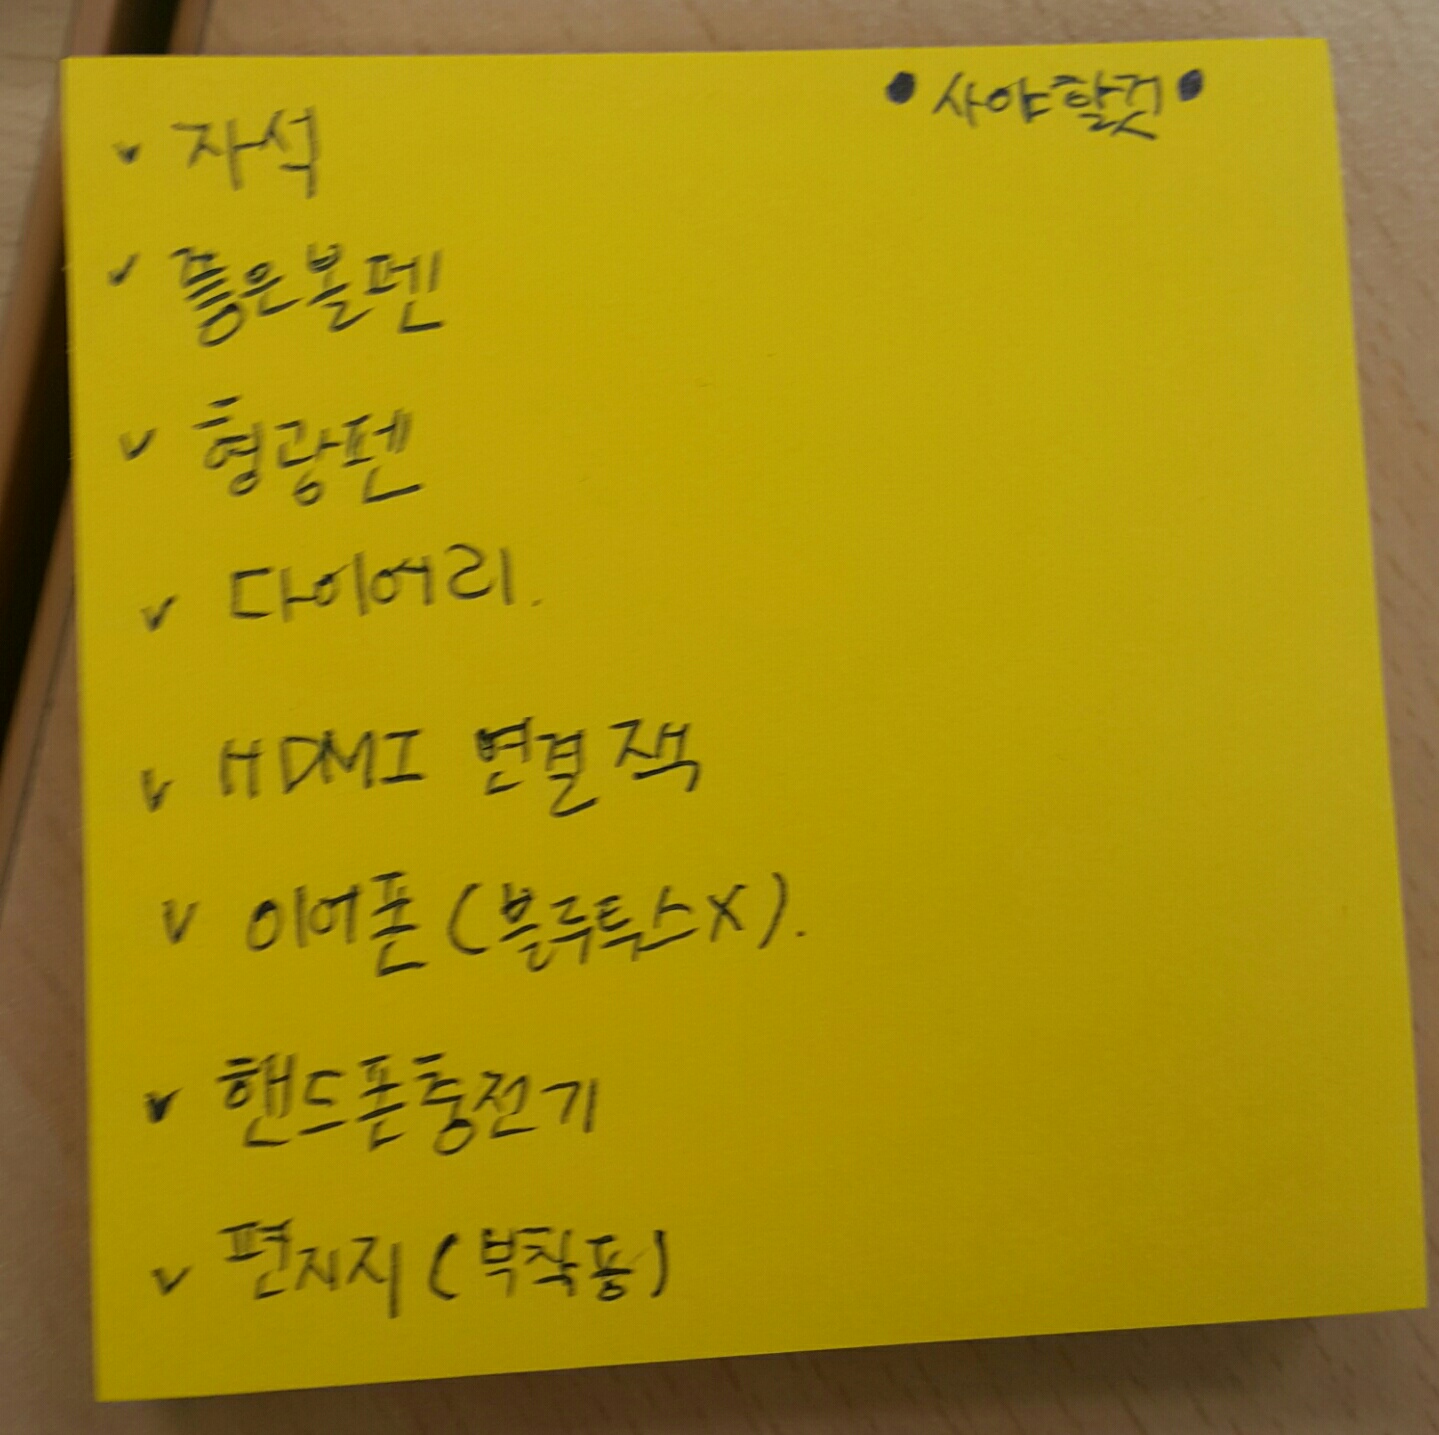 • 사야할것 •
v 자석
v 좋은볼펜
v 형광펜
v 다이어리.
v HDMI 연결잭
v 이어폰 (블루투스X).
v 핸드폰충전기
v 편지지 (부착용)